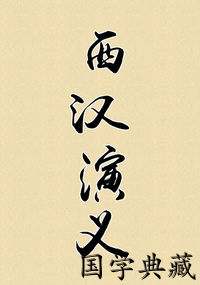 西汉演义
国学典藏